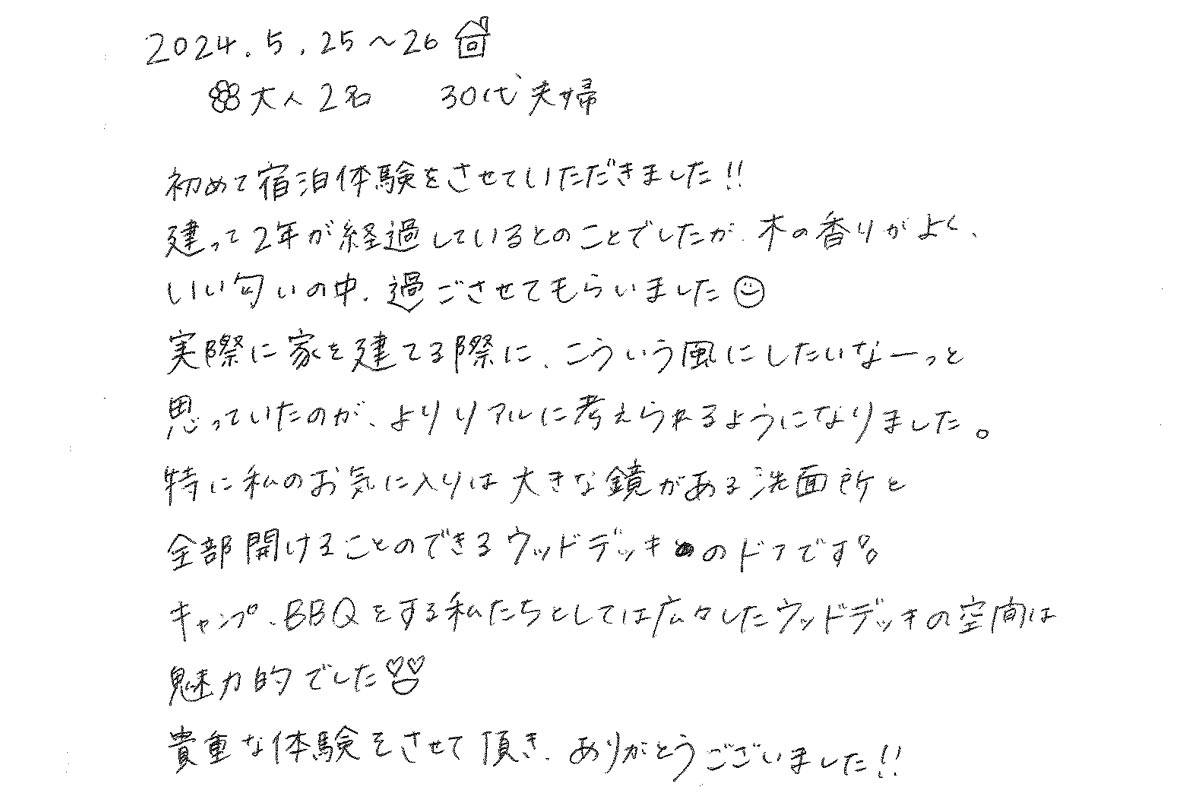 2024.5.25〜26
大人2名 30代夫婦
初めて宿泊体験をさせていただきました!!
建って2年が経過しているとのことでしたが、木の香りがよく、
いい匂いの中、過ごさせてもらいました
実際に家を建てる際に、こういう風にしたいなーっと
思っていたのが、よりリアルに考えられるようになりました。
特に私のお気に入りは大きな鏡がある洗面所と
全部開けることのできるウッドデッキのドアです
キャンプ、BBQをする私たちとしては広々したウッドデッキの空間は
魅力的でした
貴重な体験をさせて頂き、ありがとうございました!!